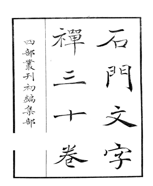 石門文字
禪三十卷
四部叢刊初編集部